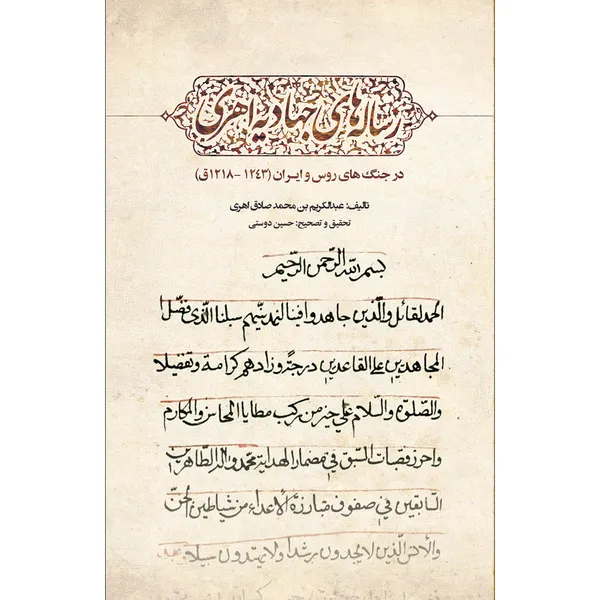 رساله‌های جهادیه اهری
در جنگ های روس و ایران (۱۲۴۳ - ۱۲۱۸ق)
تالیف: عبدالکریم بن محمد صادق اهری
تحقیق و تصحیح: حسین دوستی
بسم الله الرّحمن الرّحیم
الحمد لقائل والّذین جاهدوا فینا لنهدینّهم سبلنا الّذی فضّل
المجاهدین علی القاعدین درجة وزادهم کرامة وتفضیلا
والصّلوة والسّلام علی خیر من رکب مطایا المحاسن والمکارم
واحرز قصبات السّبق فی مضمار الهدایة محمّد واله الطّاهرین
السّابقین فی صفوف مبارزة الأعداء من شیاطین الجنّ
والانس الّذین لا یجدون رشدا ولا یهتدون سبیلا